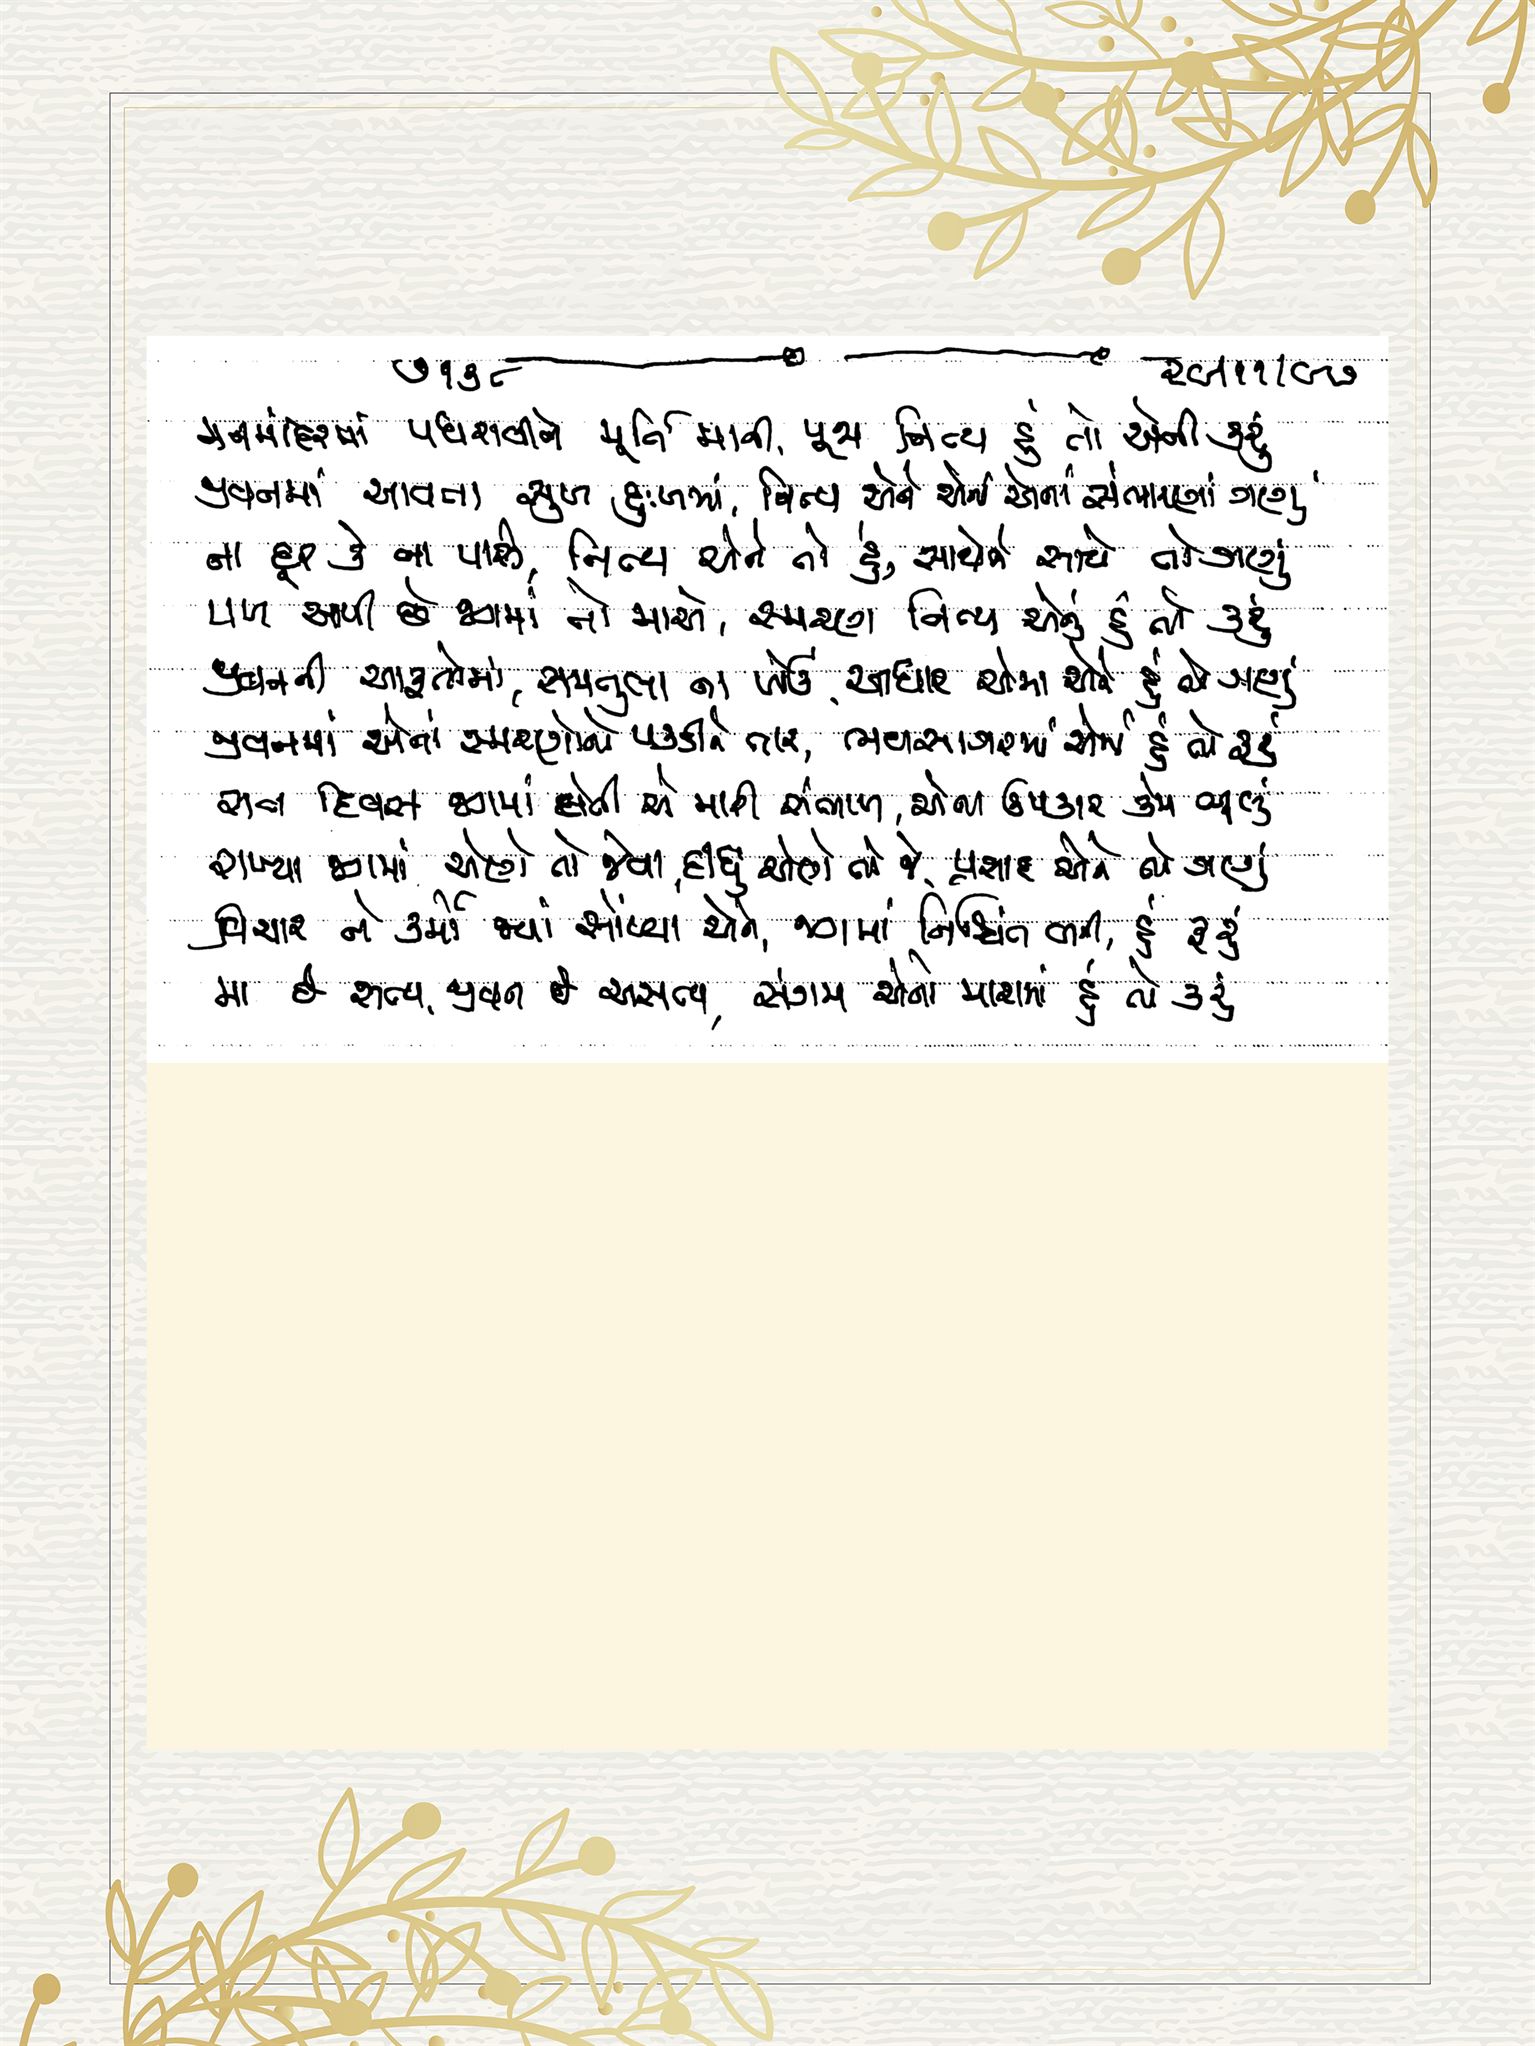 ૭૧૩૮ ૨૯/૧૧/૯૭
મનમંદિરમાં પધરાવીને મૂર્તિ માની, પૂજા નિત્ય હું તો એની કરું
જીવનમાં આવતા સુખ દુઃખમાં, નિત્ય એને એની એનાં સંભારણાં ગણું
ના દૂર કે ના પાસે, નિત્ય એને તો હું, સાથે ને સાથે તો ગણું
પળ આપી છે જગમાં તો માએ, સ્મરણ નિત્ય એનું હું તો કરું
જીવનની આફતોમાં, સમતુલા ના ખોઉં, આધાર એમાં એને હું તો ગણું
જીવનમાં એનાં સ્મરણોનો પકડીને તાર, ભવસાગરમાં એમાં હું તો ફરું
રાત દિવસ જગમાં લેતી એ મારી સંભાળ, એના ઉપકાર કેમ ભૂલું
રાખ્યા જગમાં એણે તો જેવા, દીધું એણે તો જે, પ્રસાદ એને તો ગણું
વિચાર ને કર્મો જ્યાં સોંપ્યા એને, જગમાં નિશ્ચિંત બની, હું ફરું
મા છે સત્ય, જીવન છે અસત્ય, સંગમ એનો મારામાં હું તો કરું